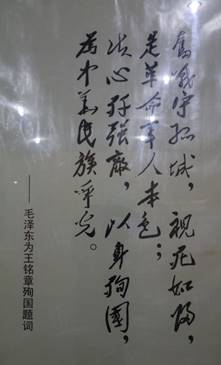 奮战守孤城，視死如歸，
是革命軍人本色；
决心歼强敵，以身殉國，
为中华民族爭光。
——毛泽东为王铭章殉国题词